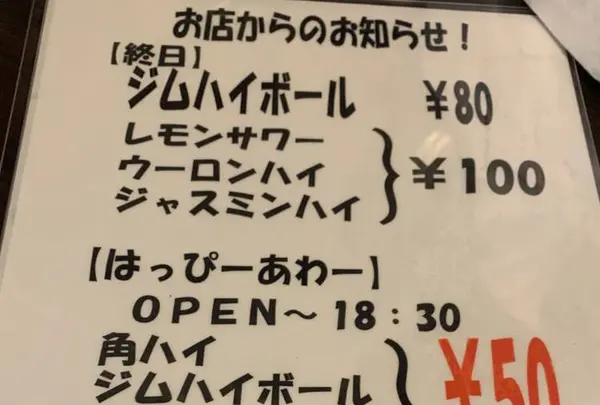 お店からのお知らせ！
【終日】
ジムハイボール ¥80
レモンサワー
ウーロンハイ ¥100
ジャスミンハイ
【はっぴーあわー】
OPEN～18：30
角ハイ
ジムハイボール ¥50